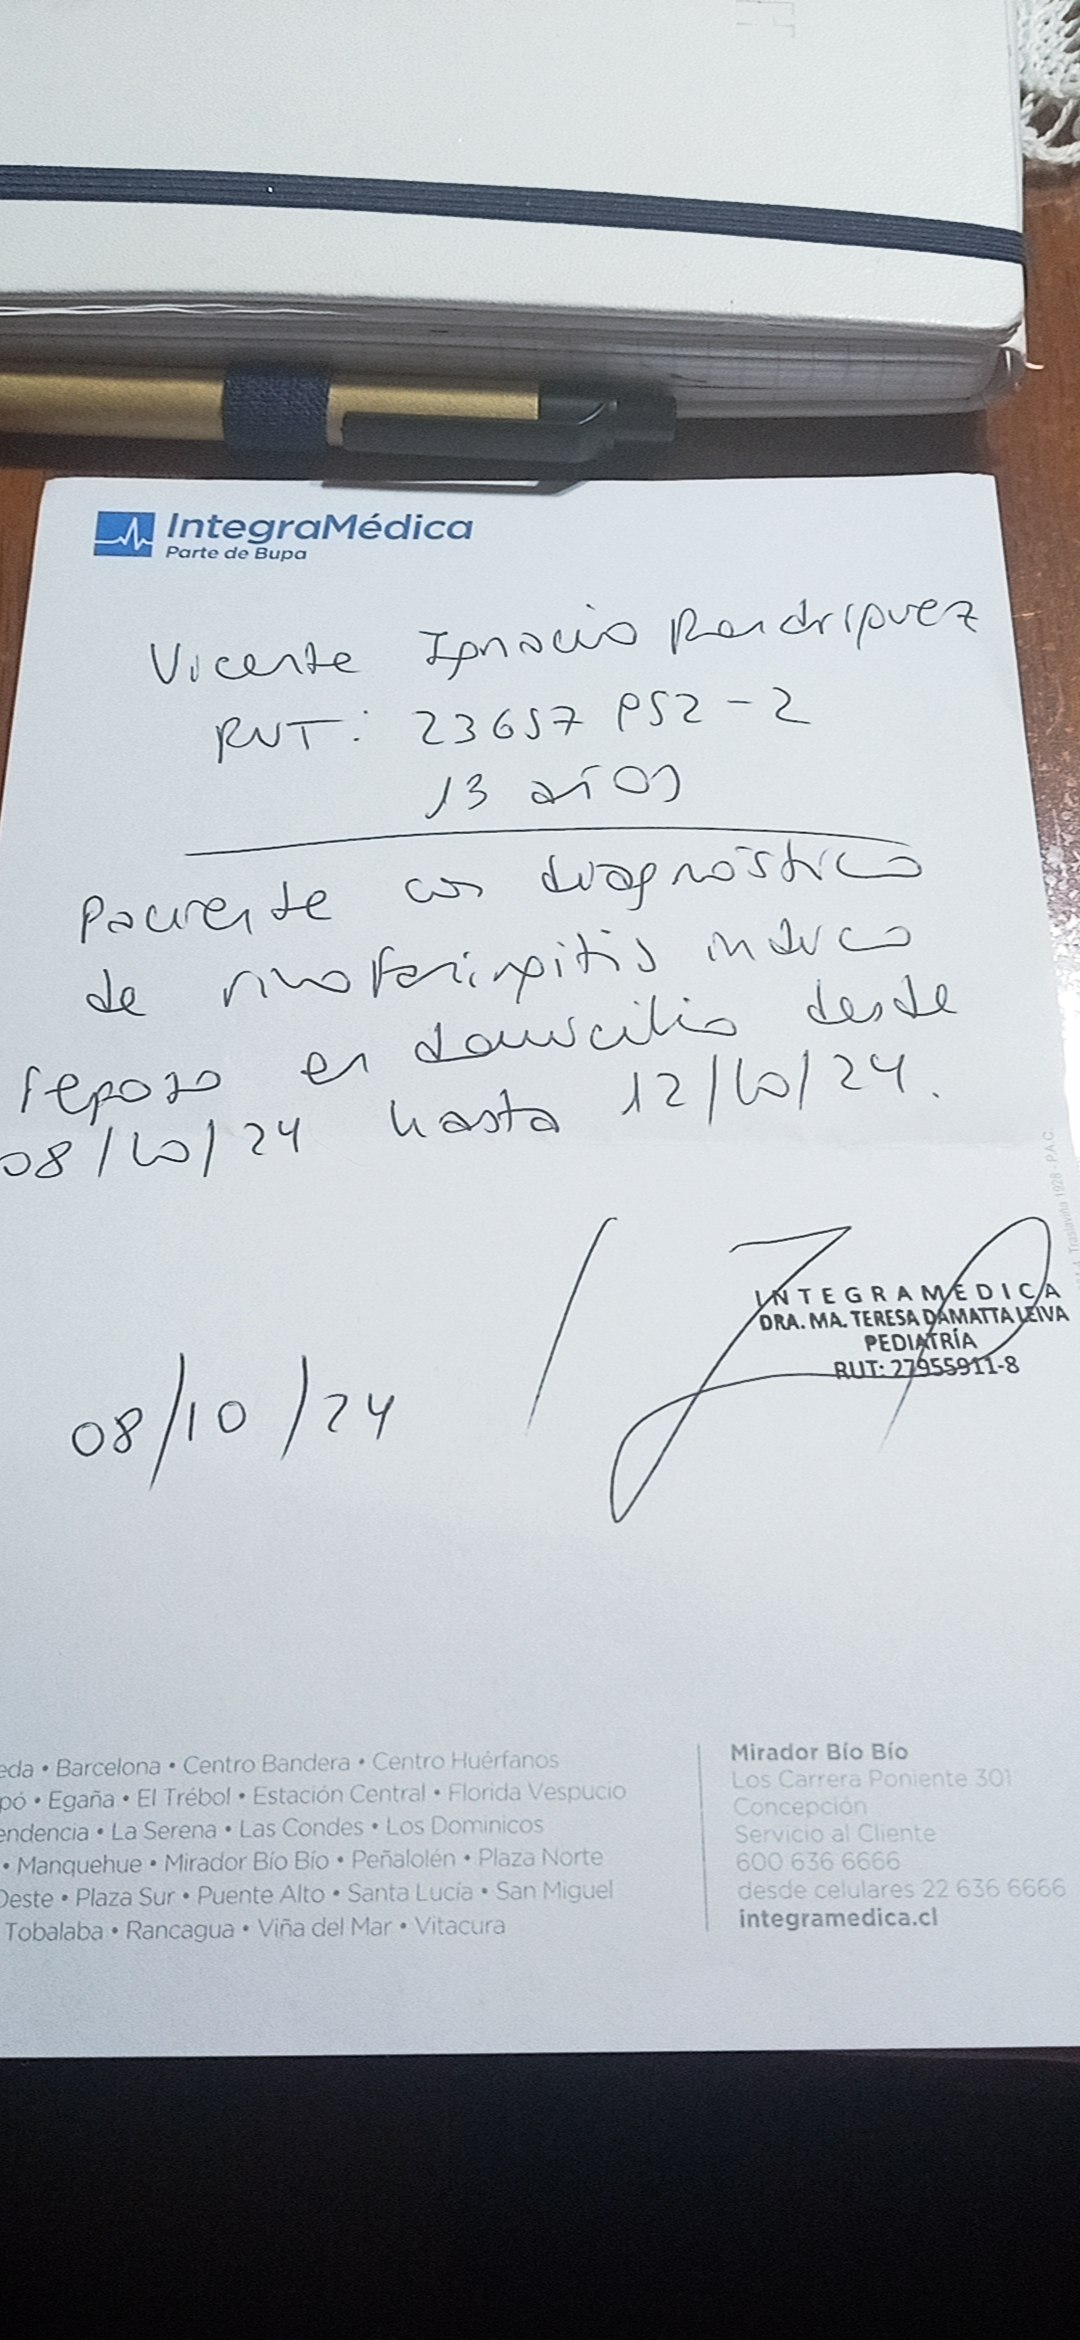 IntegraMédica
Parte de Bupa
Vicente Ignacio Rodríguez
RUT: 23657952-2
13 años
Paciente con diagnóstico
de rinofaringitis indico
reposo en domicilio desde
08/10/24 hasta 12/10/24.
08/10/24
INTEGRAMEDICA
DRA. MA. TERESA DAMATTA LEIVA
PEDIATRÍA
RUT: 27955911-8
eda • Barcelona • Centro Bandera • Centro Huérfanos
pó • Egaña • El Trébol • Estación Central • Florida Vespucio
endencia • La Serena • Las Condes • Los Dominicos
• Manquehue • Mirador Bío Bío • Peñalolén • Plaza Norte
Oeste • Plaza Sur • Puente Alto • Santa Lucía • San Miguel
Tobalaba • Rancagua • Viña del Mar • Vitacura
Mirador Bío Bío
Los Carrera Poniente 301
Concepción
Servicio al Cliente
600 636 6666
desde celulares 22 636 6666
integramedica.cl
Traslaviña 1928 - P.A.C.